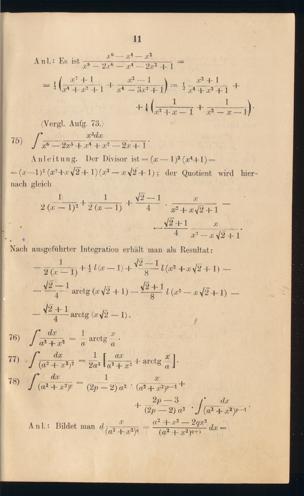 11
Anl.: Es ist (x⁶ − x⁴ − x²)/(x⁸ − 2x⁶ − x⁴ − 2x² + 1) =
= ½ ((x² + 1)/(x⁴ + x² + 1) + (x² − 1)/(x⁴ − 3x² + 1)) = ½ (x² + 1)/(x⁴ + x² + 1) +
+ ¼ (1/(x² + x − 1) + 1/(x² − x − 1)).
(Vergl. Aufg. 73.)
75) ∫ x³dx/(x⁶ − 2x⁵ + x⁴ + x² − 2x + 1)
Anleitung. Der Divisor ist = (x − 1)² (x⁴ + 1) =
= (x − 1)² (x² + x√2 + 1) (x² − x√2 + 1); der Quotient wird hier-
nach gleich
1/(2 (x − 1)²) + 1/(2 (x − 1)) + (√2 − 1)/4 · x/(x² + x√2 + 1) −
− (√2 + 1)/4 · x/(x² − x√2 + 1).
Nach ausgeführter Integration erhält man als Resultat:
− 1/(2 (x − 1)) + ½ l (x − 1) + (√2 − 1)/8 l (x² + x√2 + 1) −
− (√2 − 1)/4 arctg (x√2 + 1) − (√2 + 1)/8 l (x² − x√2 + 1) −
− (√2 + 1)/4 arctg (x√2 − 1).
76) ∫ dx/(a² + x²) = 1/a arctg x/a.
77) ∫ dx/(a² + x²)² = 1/2a³ [ax/(a² + x²) + arctg x/a].
78) ∫ dx/(a² + x²)ᵖ = 1/((2p − 2) a²) · x/(a² + x²)ᵖ⁻¹ +
+ (2p − 3)/((2p − 2) a²) · ∫ dx/(a² + x²)ᵖ⁻¹.
Anl.: Bildet man d x/(a² + x²)^q = (a² + x² − 2qx²)/(a² + x²)^(q+1) dx =